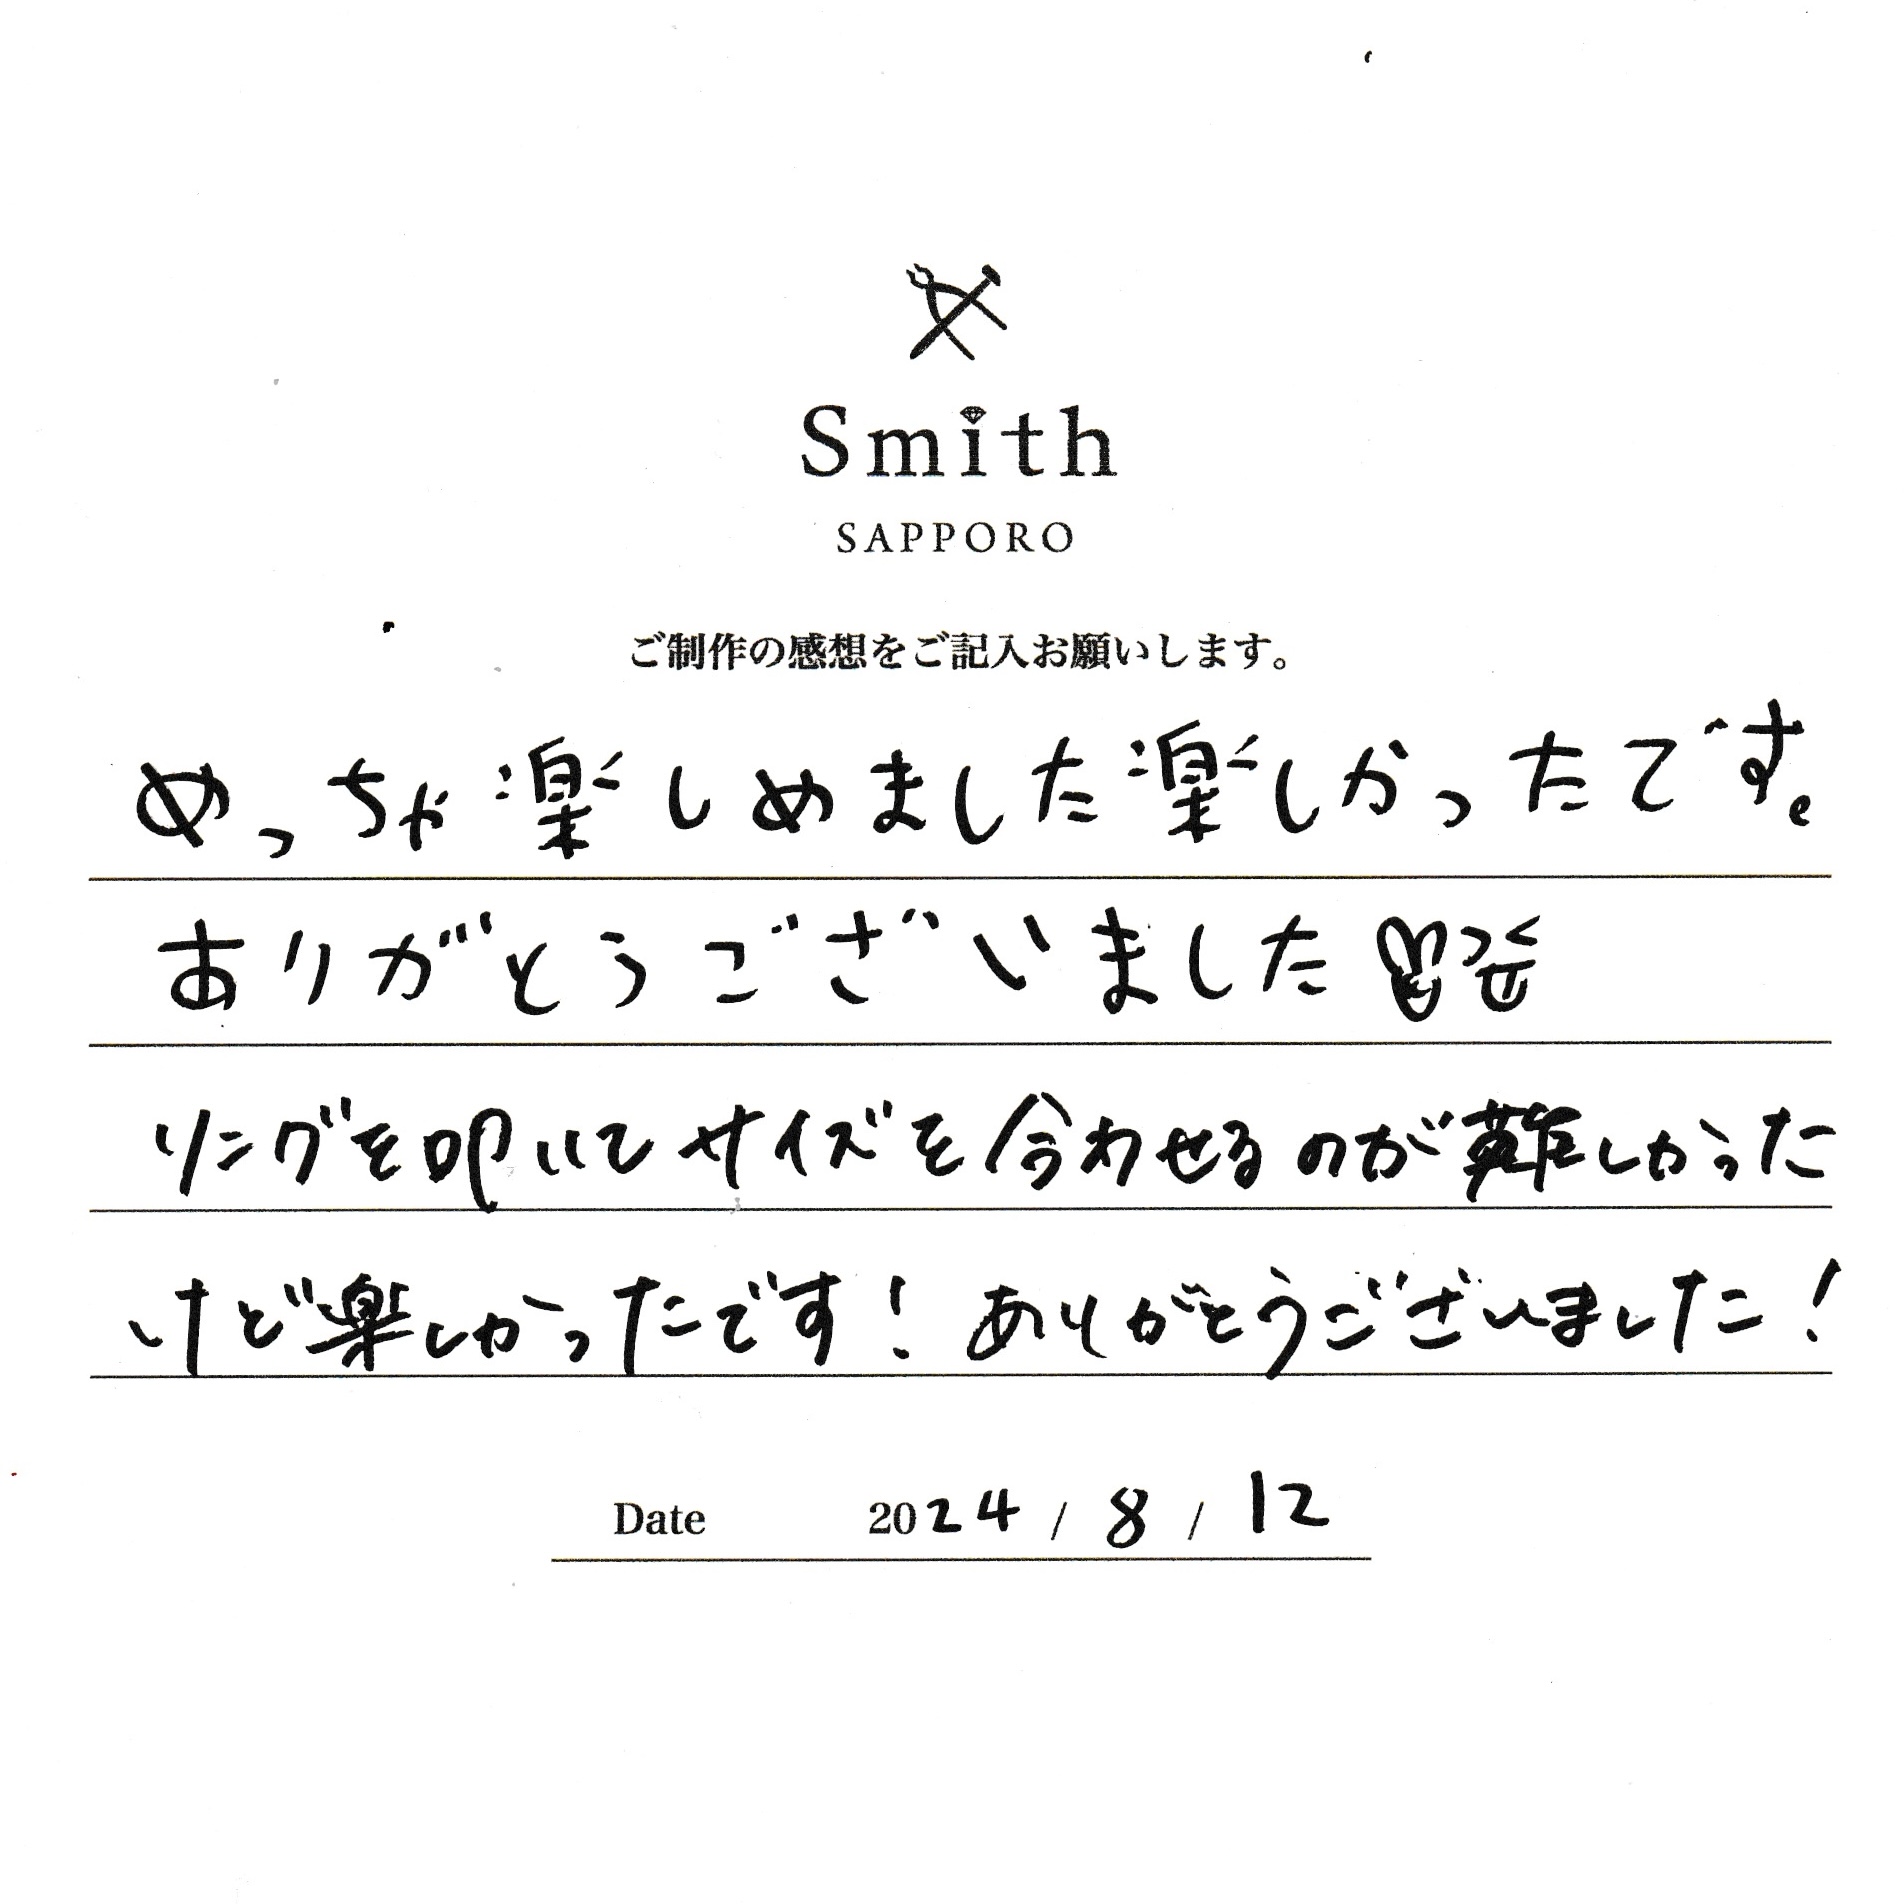 Smith
SAPPORO
ご制作の感想をご記入お願いします。
めっちゃ楽しめました楽しかったです。
ありがとうございました
リングを叩いてサイズを合わせるのが難しかった
けど楽しかったです！ありがとうございました！
Date 2024 / 8 / 12